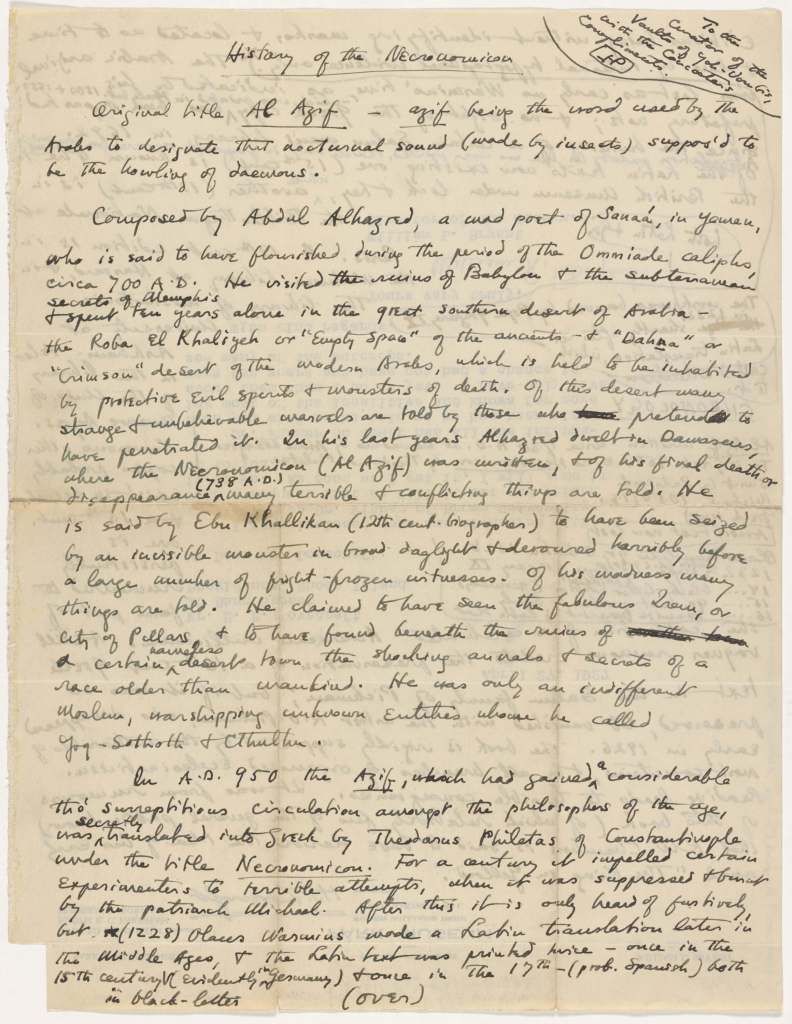 To the
Curator of the
Vaults of Yoh-Vombis,
with the Concoctor's
Compliments.
HPL
History of the Necronomicon
Original title Al Azif — azif being the word used by the
Arabs to designate that nocturnal sound (made by insects) suppos'd to
be the howling of daemons.
Composed by Abdul Alhazred, a mad poet of Sanaá, in Yemen,
who is said to have flourished during the period of the Ommiade caliphs,
circa 700 A.D. He visited the ruins of Babylon & the subterranean
secrets of Memphis
& spent ten years alone in the great southern desert of Arabia —
the Roba El Khaliyeh or "Empty Space" of the ancients — & "Dahna" or
"Crimson" desert of the modern Arabs, which is held to be inhabited
by protective evil spirits & monsters of death. Of this desert many
strange & unbelievable marvels are told by those who have pretend to
have penetrated it. In his last years Alhazred dwelt in Damascus,
where the Necronomicon (Al Azif) was written, & of his final death or
disappearance (738 A.D.) many terrible & conflicting things are told. He
is said by Ebn Khallikan (12th cent. biographer) to have been seized
by an invisible monster in broad daylight & devoured horribly before
a large number of fright-frozen witnesses. Of his madness many
things are told. He claimed to have seen the fabulous Irem, or
City of Pillars, & to have found beneath the ruins of
a certain nameless desert town the shocking annals & secrets of a
race older than mankind. He was only an indifferent
Moslem, worshipping unknown Entities whom he called
Yog-Sothoth & Cthulhu.
In A.D. 950 the Azif, which had gained a considerable
tho' surreptitious circulation amongst the philosophers of the age,
was secretly translated into Greek by Theodorus Philetas of Constantinople
under the title Necronomicon. For a century it impelled certain
experimenters to terrible attempts, when it was suppressed & burnt
by the patriarch Michael. After this it is only heard of furtively,
but (1228) Olaus Wormius made a Latin translation later in
the Middle Ages, & the Latin text was printed twice — once in the
15th century (evidently in Germany) & once in the 17th — (prob. Spanish) both
in black-letter (over)